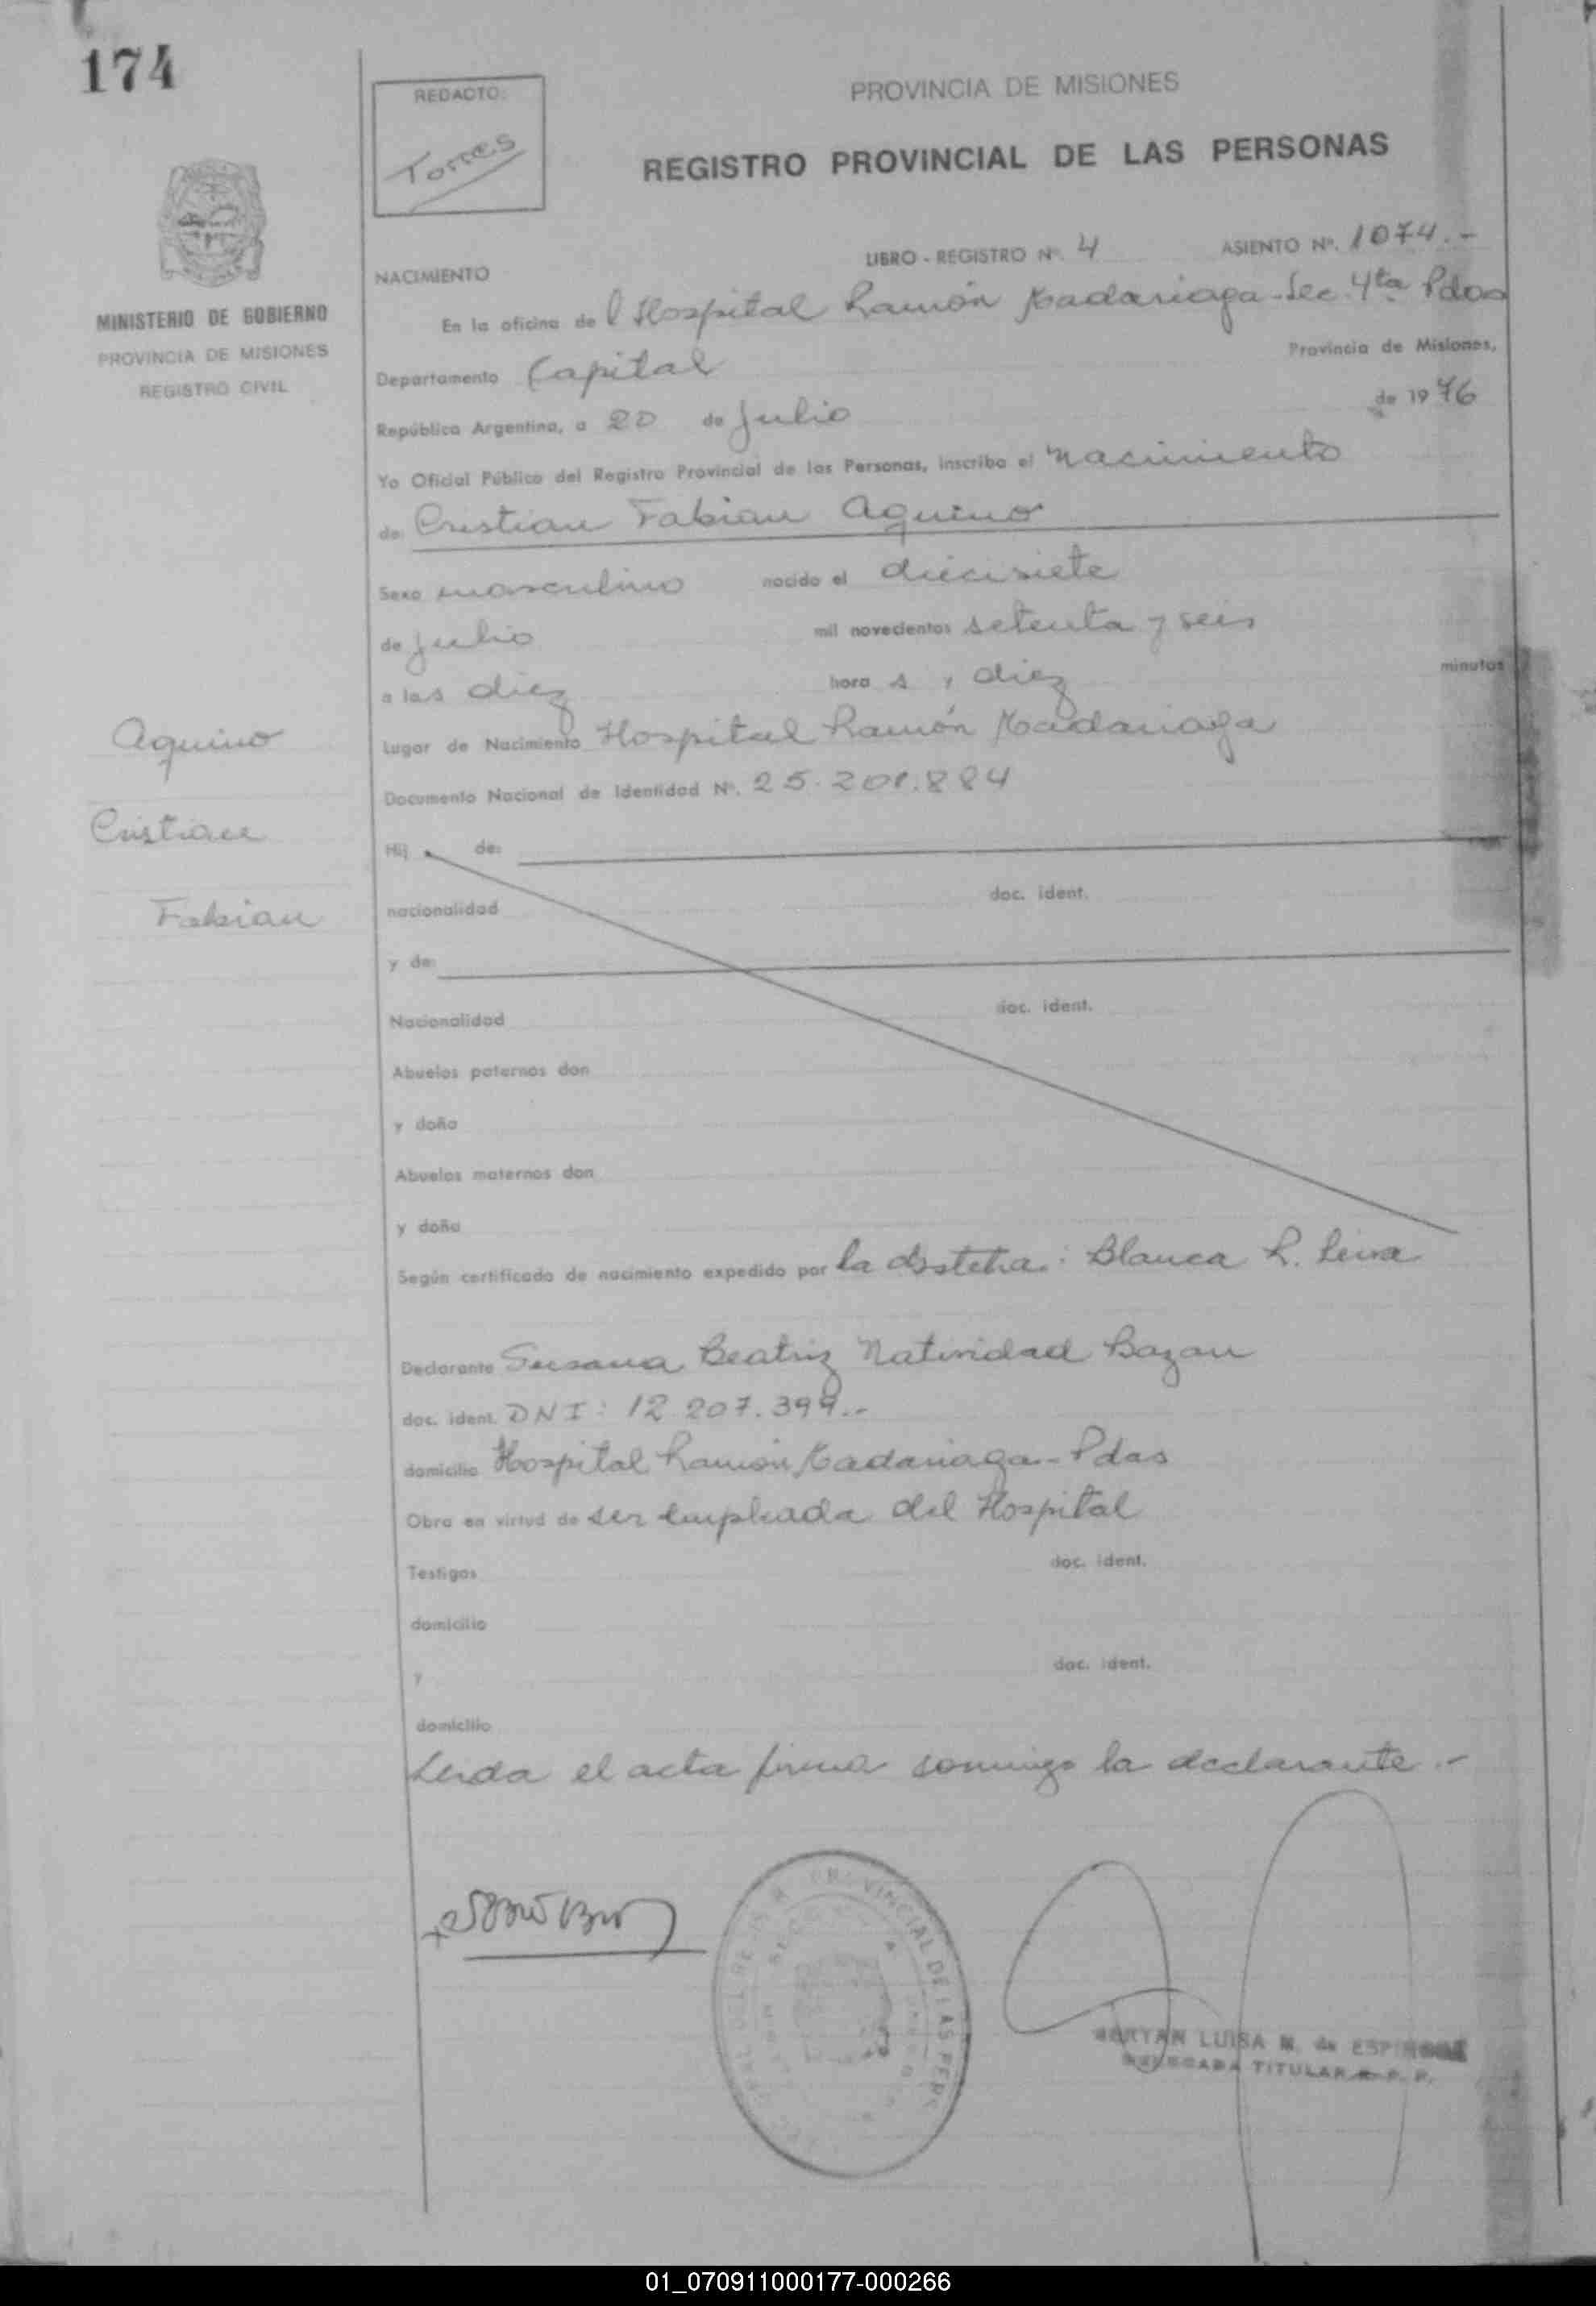 174
REDACTO:
Torres
PROVINCIA DE MISIONES
REGISTRO PROVINCIAL DE LAS PERSONAS
LIBRO - REGISTRO Nº. 4 ASIENTO Nº. 1074.-
NACIMIENTO
MINISTERIO DE GOBIERNO
PROVINCIA DE MISIONES
REGISTRO CIVIL
En la oficina del Hospital Ramón Madariaga - Sec. 4ta Pdas
Departamento Capital Provincia de Misiones,
República Argentina, a 20 de Julio de 1976
Yo Oficial Público del Registro Provincial de las Personas, inscribo el Nacimiento
de: Cristian Fabian Aquino
Sexo masculino nacido el diecisiete
de Julio mil novecientos setenta y seis
a las diez hora s y diez minutos
Lugar de Nacimiento Hospital Ramón Madariaga
Documento Nacional de Identidad Nº. 25.201.884
Aquino
Cristian
Fabian
Hij de:
nacionalidad doc. ident.
y de:
Nacionalidad doc. ident.
Abuelos paternos don
y doña
Abuelos maternos don
y doña
Según certificado de nacimiento expedido por la obstetra: Blanca R. Leiva
Declarante Susana Beatriz Natividad Bazan
doc. ident. DNI: 12.207.399.-
domicilio Hospital Ramón Madariaga - Pdas
Obra en virtud de ser empleada del Hospital
Testigos doc. ident.
domicilio
y doc. ident.
domicilio
Leida el acta firma conmigo la declarante.-
VINCIAL DE LAS PERS
LUISA M. de ESPINOSA
DELEGADA TITULAR R. P. P.
01_070911000177-000266